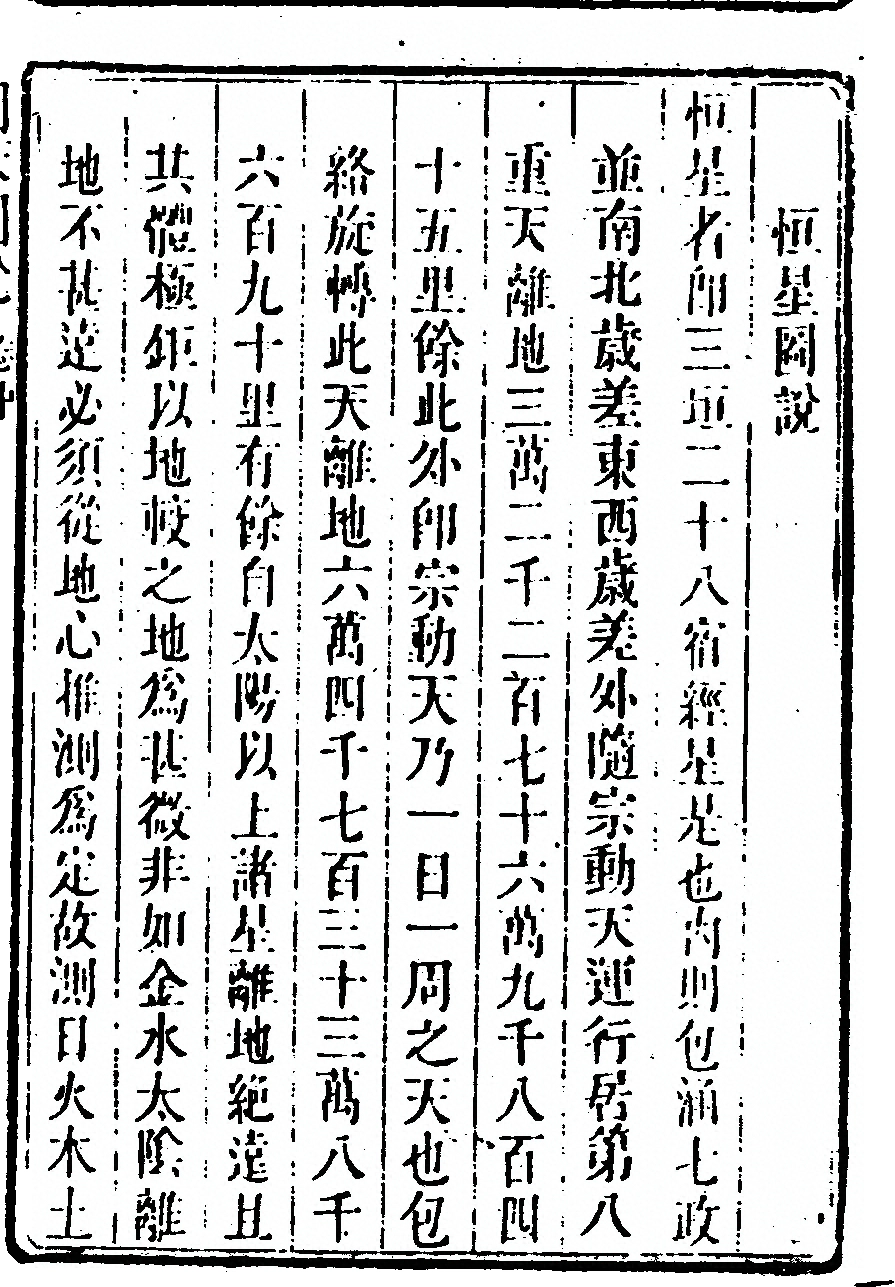 恒星圖說
恒星者卽三垣二十八宿經星是也內則包涵七政
並南北歲差東西歲差外隨宗動天運行居第八
重天離地三萬二千二百七十六萬九千八百四
十五里餘此外卽宗動天乃一日一周之天也包
絡旋轉此天離地六萬四千七百三十三萬八千
六百九十里有餘自太陽以上諸星離地絕遠且
其體極鉅以地較之地爲甚微非如金水太陰離
地不甚遠必須從地心推測爲定故測日火木土